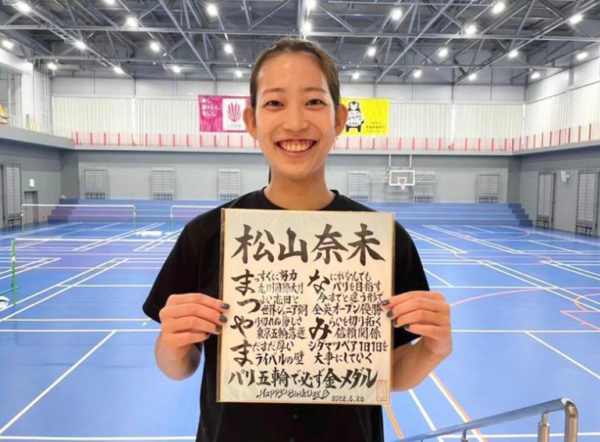 松山奈未
まっすぐに努力
九州国際大付
つよい志田と
世界ジュニア銅
や
東京五輪落選
まだまだ厚い
ライバルの壁
なにがなんでも
パリを目指す
今までと違う形で
全英オープン優勝
みらいを切り拓く
信頼関係
シダマツペア1日1日を
大事にしていく
パリ五輪で必ず金メダル
Happy Birthday
2022.6.28